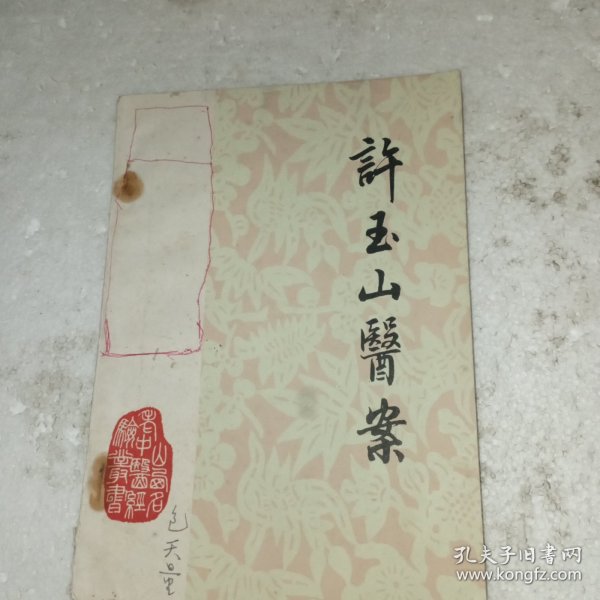 許玉山醫案
山西名
老中醫經
驗叢書
包天量
孔夫子旧书网
www.kongfz.com